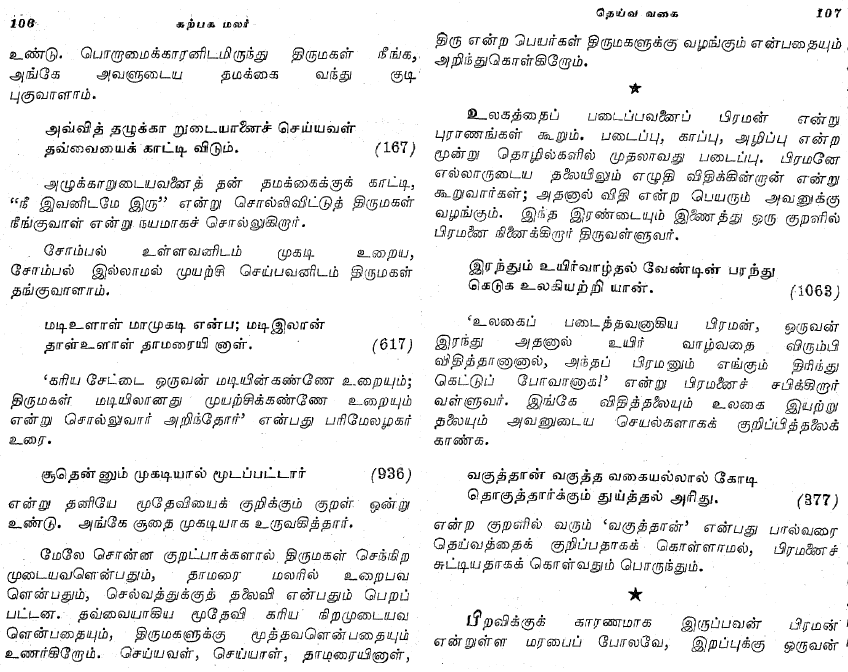 106 கற்பக மலர்
உண்டு. பொறாமைக்காரனிடமிருந்து திருமகள் நீங்க,
அங்கே அவளுடைய தமக்கை வந்து குடி
புகுவாளாம்.
அவ்வித் தழுக்கா றுடையானைச் செய்யவள்
தவ்வையைக் காட்டி விடும். (167)
அழுக்காறுடையவனைத் தன் தமக்கைக்குக் காட்டி,
“நீ இவனிடமே இரு” என்று சொல்லிவிட்டுத் திருமகள்
நீங்குவாள் என்று நயமாகச் சொல்லுகிறார்.
சோம்பல் உள்ளவனிடம் முகடி உறைய,
சோம்பல் இல்லாமல் முயற்சி செய்பவனிடம் திருமகள்
தங்குவாளாம்.
மடிஉளாள் மாமுகடி என்ப; மடிஇலான்
தாள்உளாள் தாமரையி னாள். (617)
‘கரிய சேட்டை ஒருவன் மடியின்கண்ணே உறையும்;
திருமகள் மடியிலானது முயற்சிக்கண்ணே உறையும்
என்று சொல்லுவார் அறிந்தோர்’ என்பது பரிமேலழகர்
உரை.
சூதென்னும் முகடியால் மூடப்பட்டார் (936)
என்று தனியே மூதேவியைக் குறிக்கும் குறள் ஒன்று
உண்டு. அங்கே சூதை முகடியாக உருவகித்தார்.
மேலே சொன்ன குறட்பாக்களால் திருமகள் செந்நிற
முடையவளென்பதும், தாமரை மலரில் உறைபவ
ளென்பதும், செல்வத்துக்குத் தலைவி என்பதும் பெறப்
பட்டன. தவ்வையாகிய மூதேவி கரிய நிறமுடையவ
ளென்பதையும், திருமகளுக்கு மூத்தவளென்பதையும்
உணர்கிறோம். செய்யவள், செய்யாள், தாமரையினாள்,
தெய்வ வகை 107
திரு என்ற பெயர்கள் திருமகளுக்கு வழங்கும் என்பதையும்
அறிந்துகொள்கிறோம்.
★
உலகத்தைப் படைப்பவனைப் பிரமன் என்று
புராணங்கள் கூறும். படைப்பு, காப்பு, அழிப்பு என்ற
மூன்று தொழில்களில் முதலாவது படைப்பு. பிரமனே
எல்லாருடைய தலையிலும் எழுதி விதிக்கின்றான் என்று
கூறுவார்கள்; அதனால் விதி என்ற பெயரும் அவனுக்கு
வழங்கும். இந்த இரண்டையும் இணைத்து ஒரு குறளில்
பிரமனை நினைக்கிறார் திருவள்ளுவர்.
இரந்தும் உயிர்வாழ்தல் வேண்டின் பரந்து
கெடுக உலகியற்றி யான். (1063)
‘உலகைப் படைத்தவனாகிய பிரமன், ஒருவன்
இரந்து அதனால் உயிர் வாழ்வதை விரும்பி
விதித்தானானால், அந்தப் பிரமனும் எங்கும் திரிந்து
கெட்டுப் போவானாக!’ என்று பிரமனைச் சபிக்கிறார்
வள்ளுவர். இங்கே விதித்தலையும் உலகை இயற்று
தலையும் அவனுடைய செயல்களாகக் குறிப்பித்தலைக்
காண்க.
வகுத்தான் வகுத்த வகையல்லால் கோடி
தொகுத்தார்க்கும் துய்த்தல் அரிது. (377)
என்ற குறளில் வரும் ‘வகுத்தான்’ என்பது பால்வரை
தெய்வத்தைக் குறிப்பதாகக் கொள்ளாமல், பிரமனைச்
சுட்டியதாகக் கொள்வதும் பொருந்தும்.
★
பிறவிக்குக் காரணமாக இருப்பவன் பிரமன்
என்றுள்ள மரபைப் போலவே, இறப்புக்கு ஒருவன்